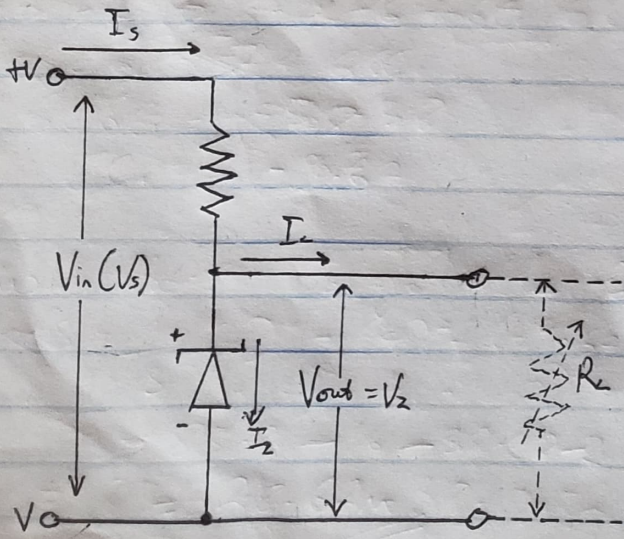 Is
+V
IL
Vin (Vs)
+
-
Iz
Vout = Vz
RL
V